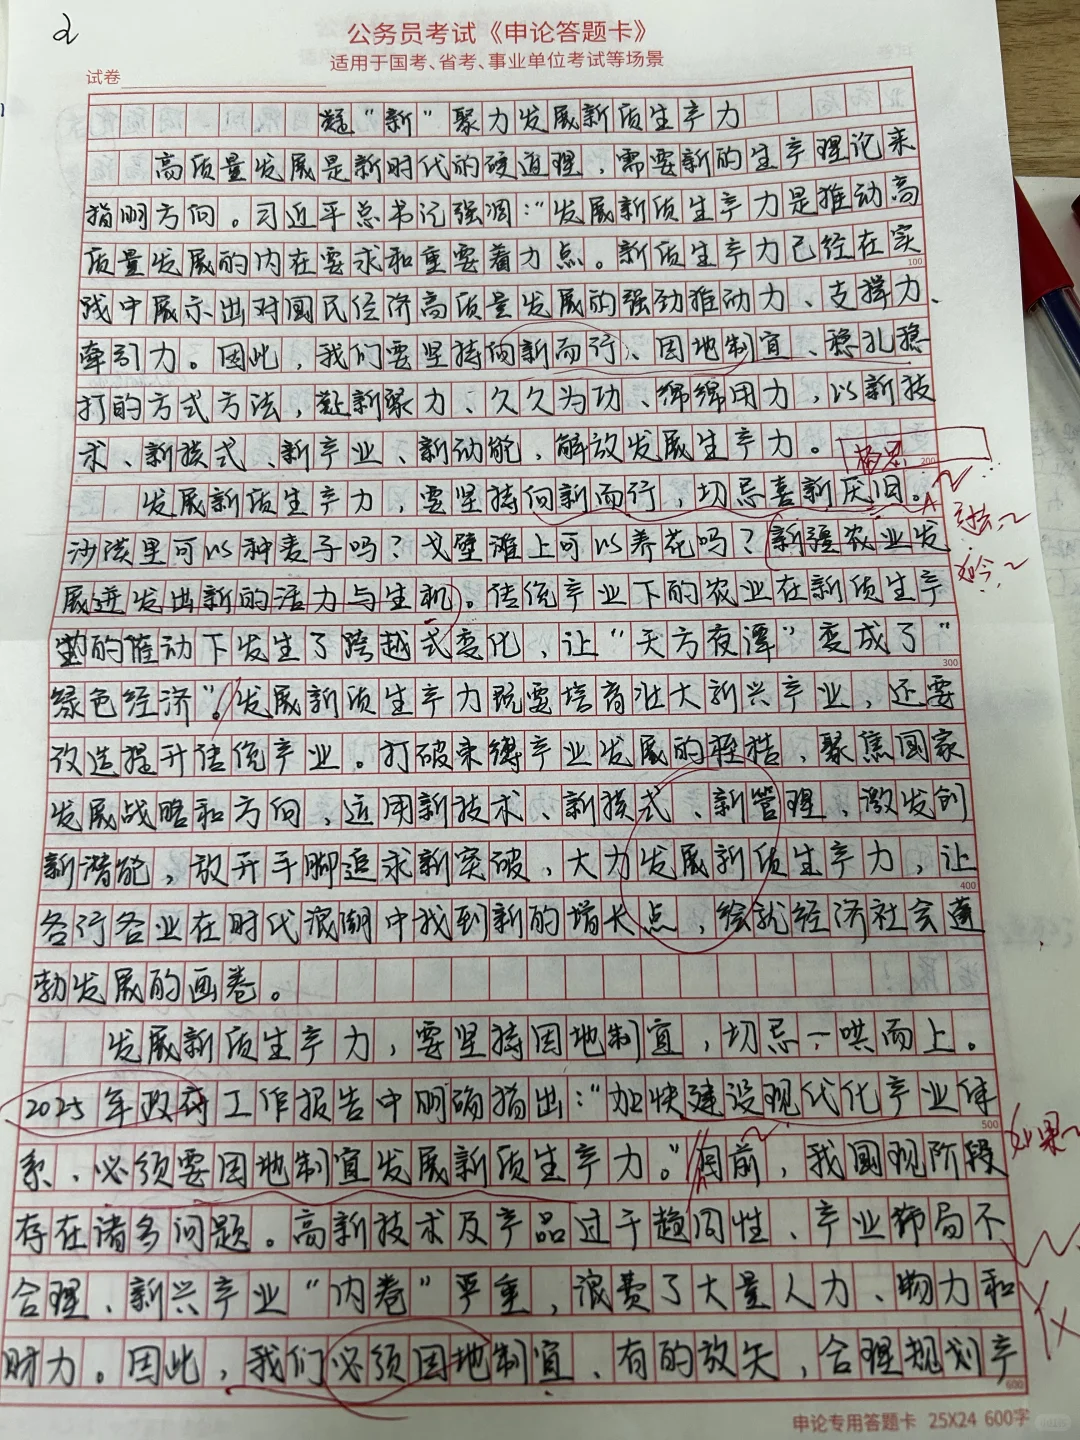 2
公务员考试《申论答题卡》
适用于国考、省考、事业单位考试等场景
试卷
凝“新”聚力发展新质生产力
高质量发展是新时代的硬道理，需要新的生产理论来
指明方向。习近平总书记强调：“发展新质生产力是推动高
质量发展的内在要求和重要着力点。新质生产力已经在实
100
践中展示出对国民经济高质量发展的强劲推动力、支撑力、
牵引力。因此，我们要坚持向新而行、因地制宜、稳扎稳
打的方式方法，凝新聚力、久久为功、绵绵用力，以新技
术、新模式、新产业、新动能，解放发展生产力。
200
发展新质生产力，要坚持向新而行，切忌喜新厌旧。
沙漠里可以种麦子吗？戈壁滩上可以养花吗？新疆农业发
过去
展迸发出新的活力与生机。传统产业下的农业在新质生产
如今
的催动下发生了跨越式变化，让“天方夜谭”变成了“
300
绿色经济”。发展新质生产力既要培育壮大新兴产业，还要
改造提升传统产业。打破束缚产业发展的桎梏，聚焦国家
发展战略和方向，运用新技术、新模式、新管理，激发创
新潜能，放开手脚追求新突破，大力发展新质生产力，让
400
各行各业在时代浪潮中找到新的增长点，绘就经济社会蓬
勃发展的画卷。
发展新质生产力，要坚持因地制宜，切忌一哄而上。
2025年政府工作报告中明确指出：“加快建设现代化产业体
500
系，必须要因地制宜发展新质生产力。”目前，我国现阶段
如果
存在诸多问题。高新技术及产品过于趋同性、产业布局不
合理、新兴产业“内卷”严重，浪费了大量人力、物力和
财力。因此，我们必须因地制宜、有的放矢，合理规划产
600
申论专用答题卡 25X24 600字